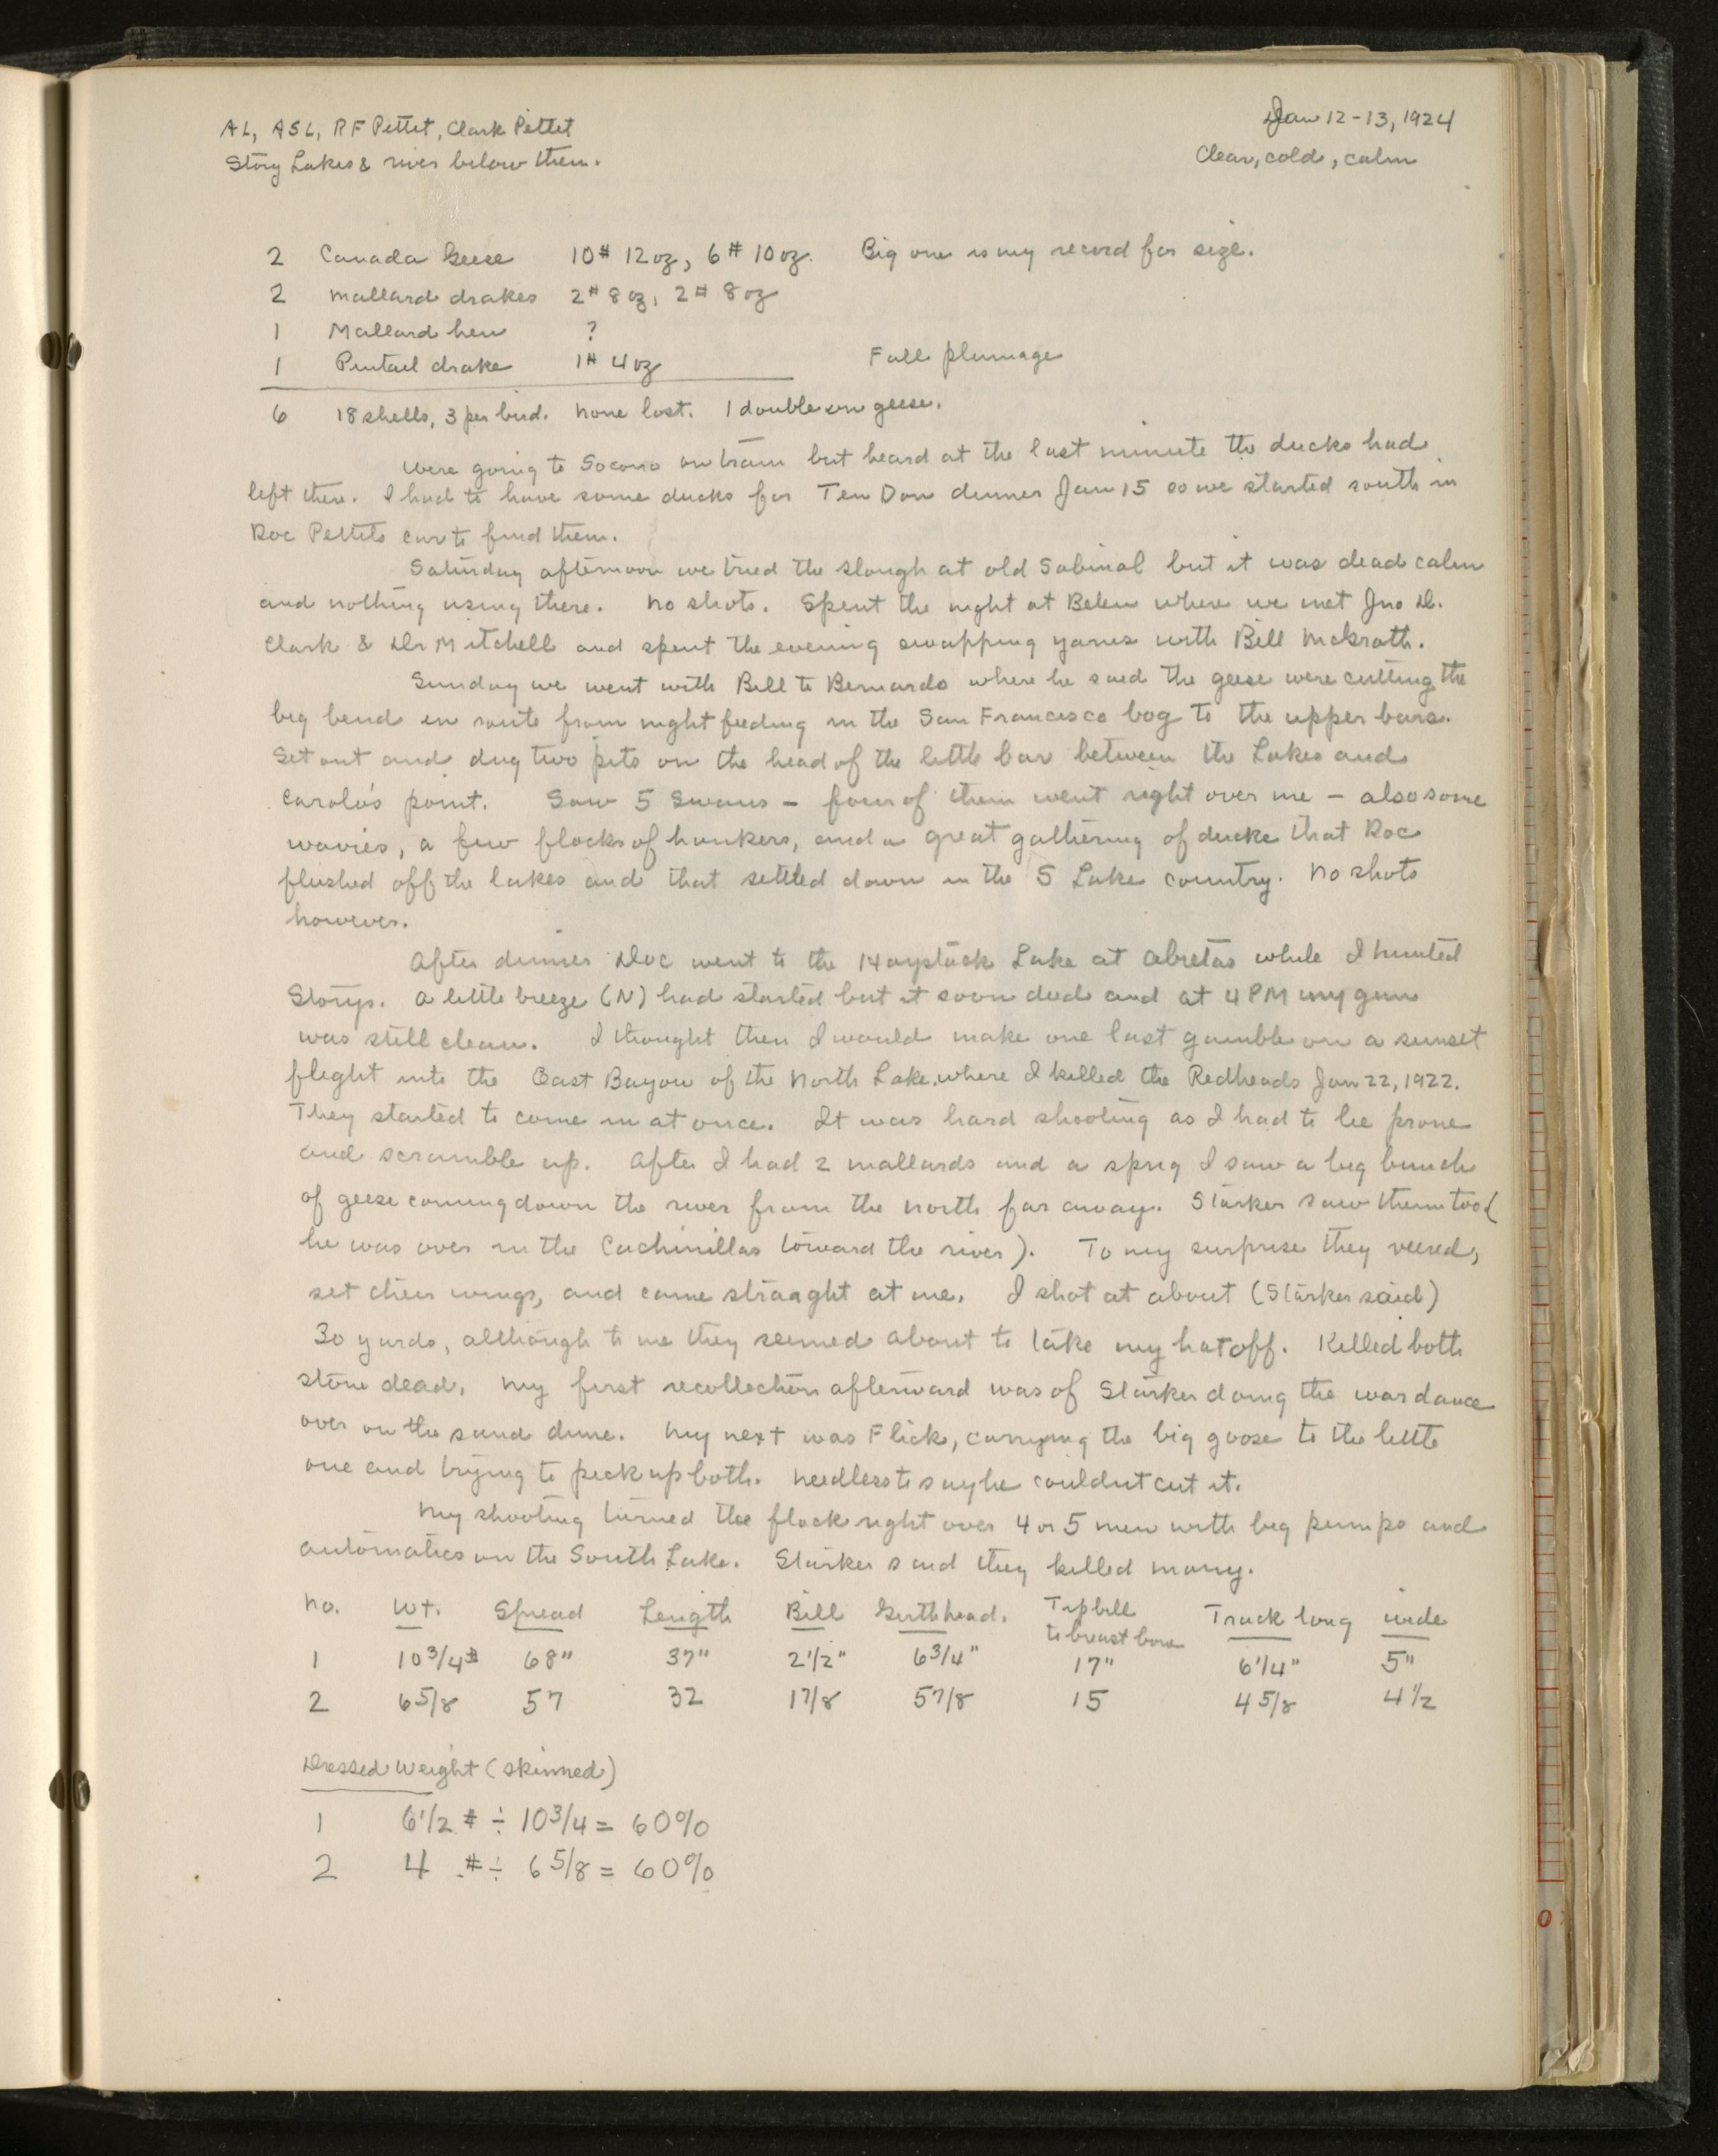 AL, ASL, RF Pettit, Clark Pettit
Jan 12-13, 1924
Story Lakes & river below them.
Clear, cold, calm
2 Canada Geese 10# 12oz, 6# 10oz. Big one is my record for size.
2 Mallard drakes 2# 8oz, 2# 8oz
1 Mallard hen ?
1 Pintail drake 1# 4oz Full plumage
6 18 shells, 3 per bird. None lost. 1 double on geese.
Were going to Socorro on train but heard at the last minute the ducks had
left there. I had to have some ducks for Ten Don dinner Jan 15 so we started south in
Doc Pettits car to find them.
Saturday afternoon we tried the slough at old Sabinal but it was dead calm
and nothing using there. No shots. Spent the night at Belen where we met Jno D.
Clark & Dr Mitchell and spent the evening swapping yarns with Bill McGrath.
Sunday we went with Bill to Bernardo where he said the geese were cutting the
big bend en route from night feeding in the San Francisco bog to the upper bars.
Set out and dug two pits on the head of the little bar between the Lakes and
Carolo's point. Saw 5 Swans - four of them went right over me - also some
wavies, a few flocks of honkers, and a great gathering of ducks that Doc
flushed off the lakes and that settled down in the S Lake country. No shots
however.
After dinner Doc went to the Haystack Lake at Abretas while I hunted
Storys. A little breeze (N) had started but it soon died and at 4 PM my gun
was still clean. I thought then I would make one last gamble on a sunset
flight into the East Bayou of the North Lake, where I killed the Redheads Jan 22, 1922.
They started to come in at once. It was hard shooting as I had to lie prone
and scramble up. After I had 2 mallards and a sprig I saw a big bunch
of geese coming down the river from the north far away. Starker saw them too (
he was over in the Cachinillas toward the river). To my surprise they veered,
set their wings, and came straight at me. I shot at about (Starker said)
30 yards, although to me they seemed about to take my hat off. Killed both
stone dead. My first recollection afterward was of Starker doing the war dance
over on the sand dune. My next was Flick, carrying the big goose to the little
one and trying to pick up both. Needless to say he couldnt cut it.
My shooting turned the flock right over 4 or 5 men with big pumps and
automatics on the South Lake. Starker said they killed many.
No. Wt. Spread Length Bill Girth head. Tip bill to breast bone Track long wide
1 10 3/4# 68" 37" 2 1/2" 6 3/4" 17" 6 1/4" 5"
2 6 5/8 57 32 1 7/8 5 7/8 15 4 5/8 4 1/2
Dressed Weight (skinned)
1 6 1/2 # ÷ 10 3/4 = 60%
2 4 # ÷ 6 5/8 = 60%